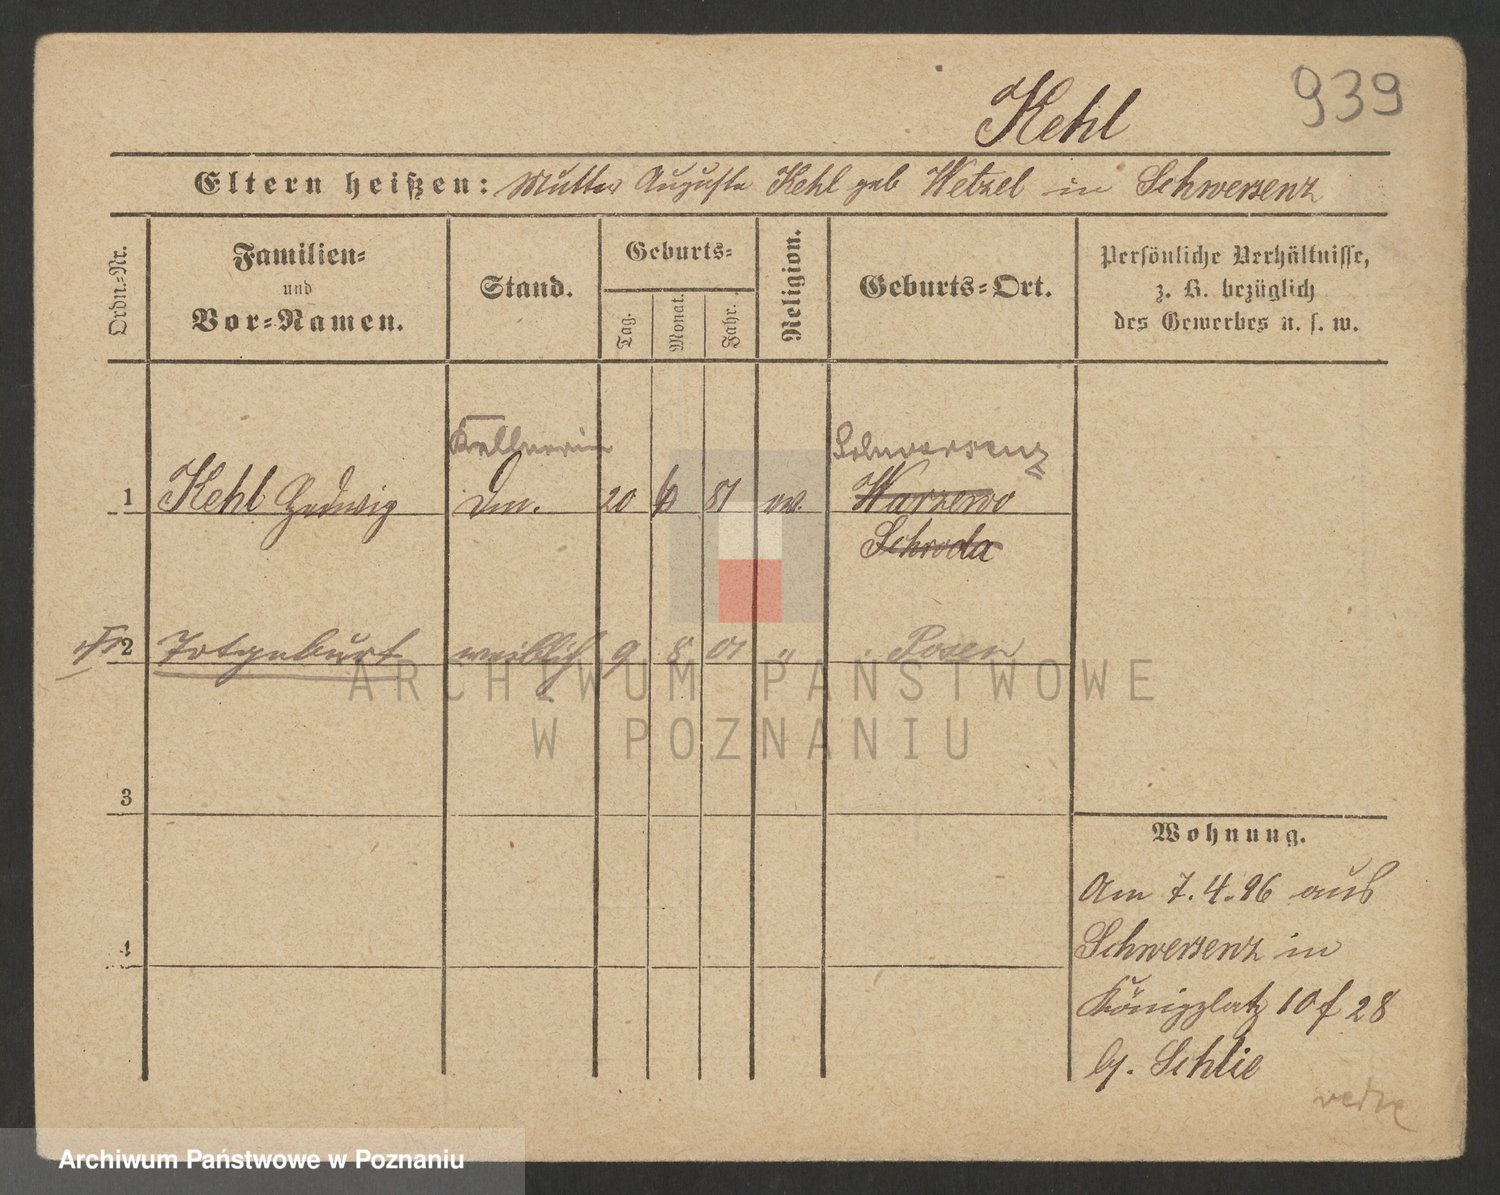 Kehl
939
Eltern heißen: Mutter Auguste Kehl geb Wetzel in Schwersenz
Ordn.-Nr.
Familien-
und
Vor-Namen.
Stand.
Geburts-
Tag.
Monat.
Jahr.
Religion.
Geburts-Ort.
Persönliche Verhältnisse,
z. B. bezüglich
des Gewerbes u. s. w.
Kellnerin
Schwersenz
1 Kehl Hedwig Dm. 20 6 81 ev. Warzewo
Schroda
2 Totgeburt weiblich 9 8 01 " Posen
ARCHIWUM PAŃSTWOWE
W POZNANIU
3
4
Wohnung.
Am 7.4.96 aus
Schwersenz in
Königsplatz 10 f 28
b/. Schlie
Archiwum Państwowe w Poznaniu